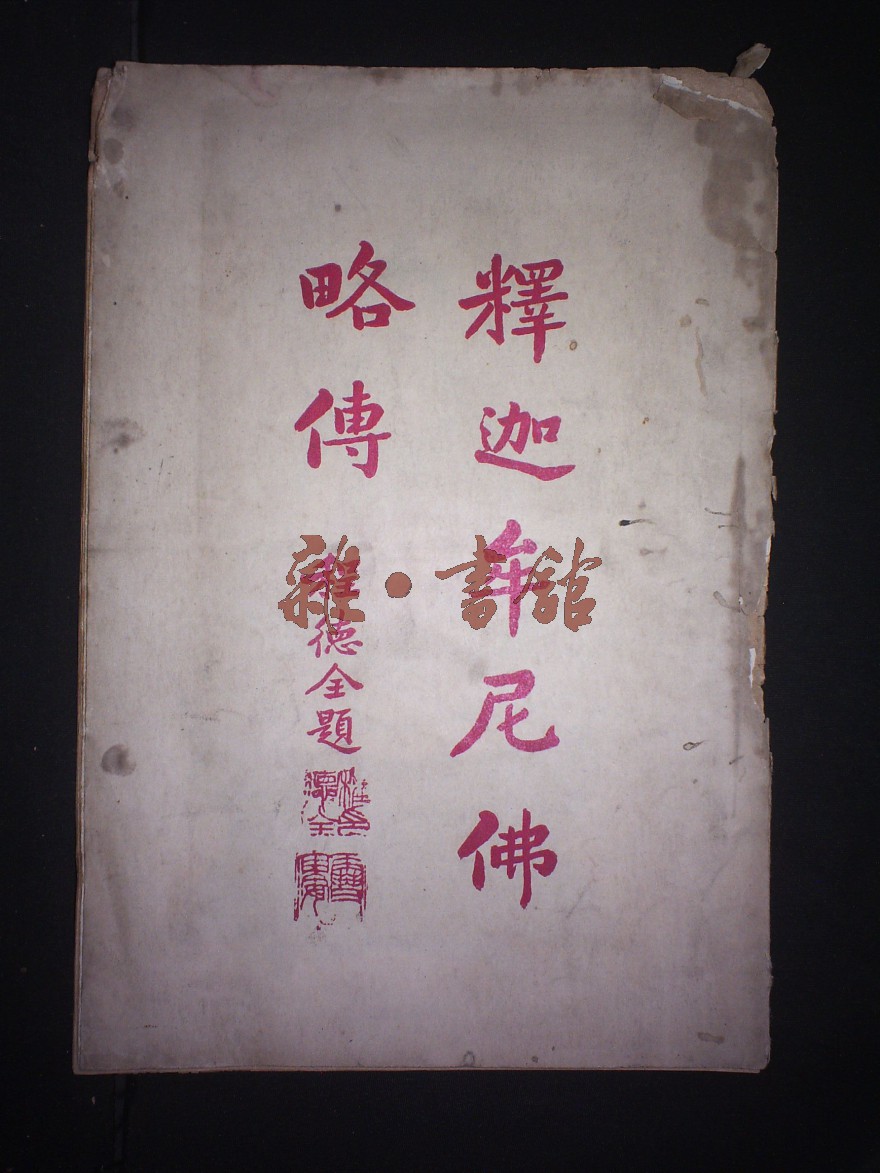 釋迦牟尼佛
略傳
程德全題
雜·書館